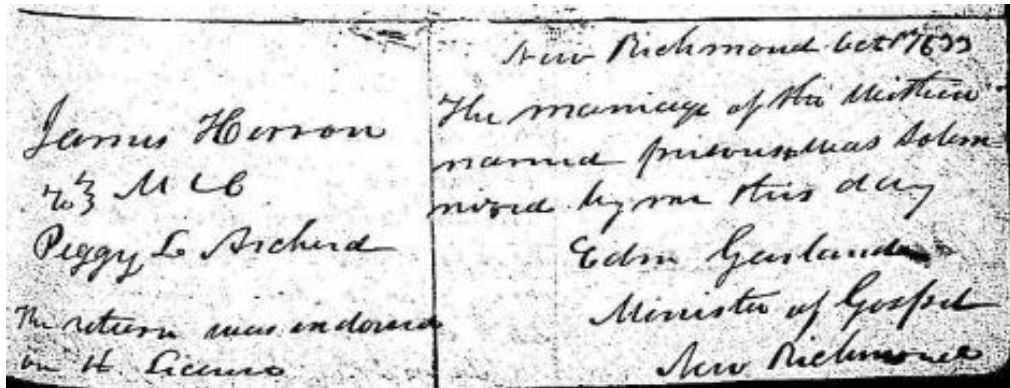 James Herron
to } M L C
Peggy L Archerd
The return was endorsed
on H. License
New Richmond Oct 17 1633
The marriage of the within
named persons was solem=
nized by me this day
Edm Garland
Minister of Gospel
New Richmond